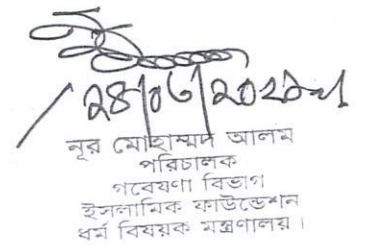 ২৪/০৬/২০২১
নূর মোহাম্মদ আলম
পরিচালক
গবেষণা বিভাগ
ইসলামিক ফাউন্ডেশন
ধর্ম বিষয়ক মন্ত্রণালয়।